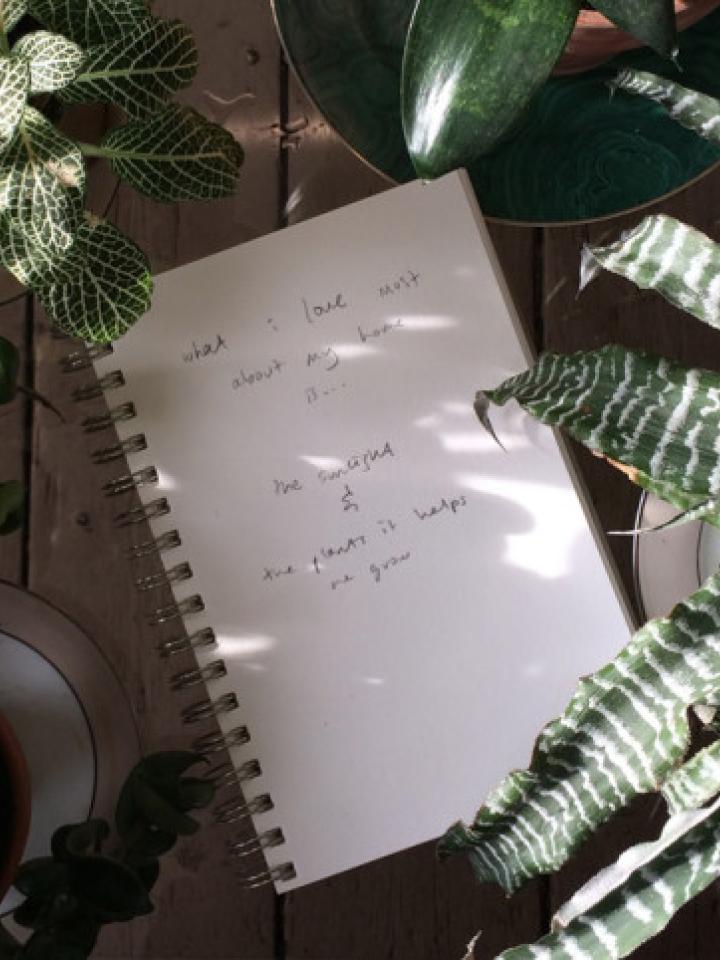 what i love most
about my home
is...
the sunlight
&
the plants it helps
me grow